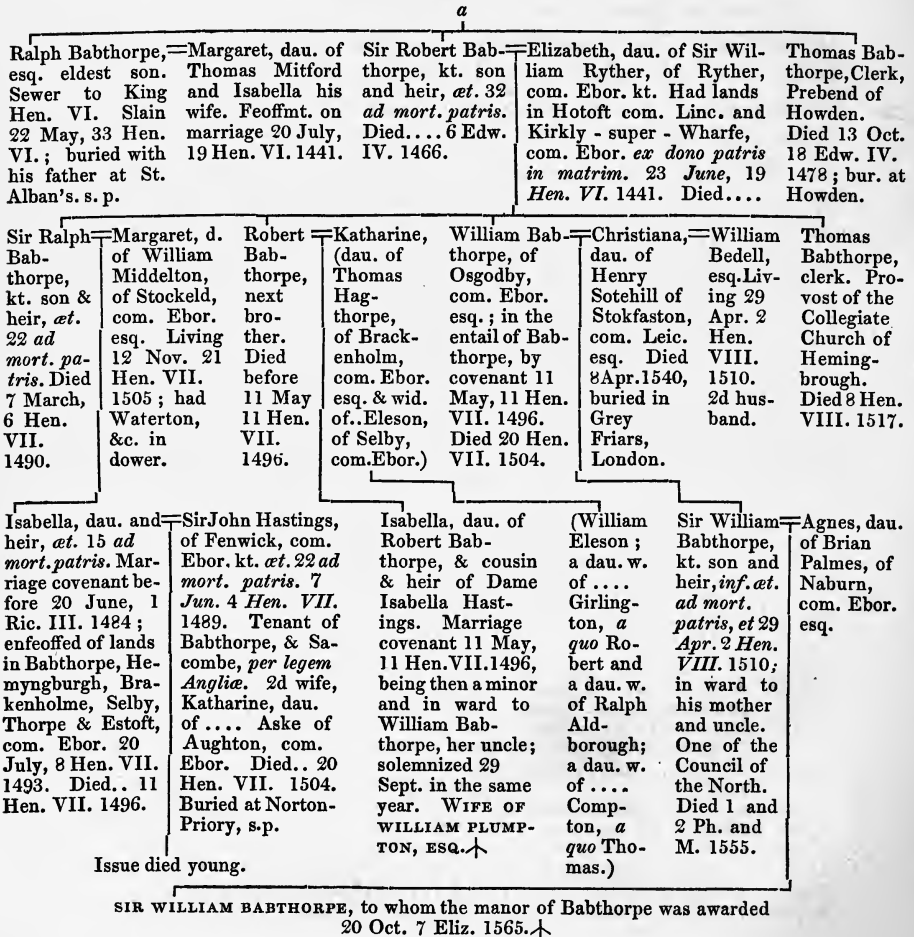 a
Ralph Babthorpe,
esq. eldest son.
Sewer to King
Hen. VI. Slain
22 May, 33 Hen.
VI.; buried with
his father at St.
Alban's. s. p.
Margaret, dau. of
Thomas Mitford
and Isabella his
wife. Feoffmt. on
marriage 20 July,
19 Hen. VI. 1441.
Sir Robert Bab-
thorpe, kt. son
and heir, æt. 32
ad mort. patris.
Died.... 6 Edw.
IV. 1466.
Elizabeth, dau. of Sir Wil-
liam Ryther, of Ryther,
com. Ebor. kt. Had lands
in Hotoft com. Linc. and
Kirkly - super - Wharfe,
com. Ebor. ex dono patris
in matrim. 23 June, 19
Hen. VI. 1441. Died....
Thomas Bab-
thorpe, Clerk,
Prebend of
Howden.
Died 13 Oct.
18 Edw. IV.
1478; bur. at
Howden.
Sir Ralph
Bab-
thorpe,
kt. son &
heir, æt.
22 ad
mort. pa-
tris. Died
7 March,
6 Hen.
VII.
1490.
Margaret, d.
of William
Middelton,
of Stockeld,
com. Ebor.
esq. Living
12 Nov. 21
Hen. VII.
1505; had
Waterton,
&c. in
dower.
Robert
Bab-
thorpe,
next
bro-
ther.
Died
before
11 May
11 Hen.
VII.
1496.
Katharine,
(dau. of
Thomas
Hag-
thorpe,
of Brack-
enholm,
com. Ebor.
esq. & wid.
of..Eleson,
of Selby,
com.Ebor.)
William Bab-
thorpe, of
Osgodby,
com. Ebor.
esq.; in the
entail of Bab-
thorpe, by
covenant 11
May, 11 Hen.
VII. 1496.
Died 20 Hen.
VII. 1504.
Christiana,
dau. of
Henry
Sotehill of
Stokfaston,
com. Leic.
esq. Died
8 Apr. 1540,
buried in
Grey
Friars,
London.
William
Bedell,
esq. Liv-
ing 29
Apr. 2
Hen.
VIII.
1510.
2d hus-
band.
Thomas
Babthorpe,
clerk. Pro-
vost of the
Collegiate
Church of
Heming-
brough.
Died 8 Hen.
VIII. 1517.
Isabella, dau. and
heir, æt. 15 ad
mort. patris. Mar-
riage covenant be-
fore 20 June, 1
Ric. III. 1484;
enfeoffed of lands
in Babthorpe, He-
myngburgh, Bra-
kenholme, Selby,
Thorpe & Estoft,
com. Ebor. 20
July, 8 Hen. VII.
1493. Died.. 11
Hen. VII. 1496.
Sir John Hastings,
of Fenwick, com.
Ebor. kt. æt. 22 ad
mort. patris. 7
Jun. 4 Hen. VII.
1489. Tenant of
Babthorpe, & Sa-
combe, per legem
Angliæ. 2d wife,
Katharine, dau.
of .... Aske of
Aughton, com.
Ebor. Died.. 20
Hen. VII. 1504.
Buried at Norton-
Priory, s.p.
Issue died young.
Isabella, dau. of
Robert Bab-
thorpe, & cousin
& heir of Dame
Isabella Hast-
ings. Marriage
covenant 11 May,
11 Hen. VII. 1496,
being then a minor
and in ward to
William Bab-
thorpe, her uncle;
solemnized 29
Sept. in the same
year. WIFE OF
WILLIAM PLUMP-
TON, ESQ.
(William
Eleson;
a dau. w.
of ....
Girling-
ton, a
quo Ro-
bert and
a dau. w.
of Ralph
Ald-
borough;
a dau. w.
of ....
Comp-
ton, a
quo Tho-
mas.)
Sir William
Babthorpe,
kt. son and
heir, inf. æt.
ad mort.
patris, et 29
Apr. 2 Hen.
VIII. 1510;
in ward to
his mother
and uncle.
One of the
Council of
the North.
Died 1 and
2 Ph. and
M. 1555.
Agnes, dau.
of Brian
Palmes, of
Naburn,
com. Ebor.
esq.
SIR WILLIAM BABTHORPE, to whom the manor of Babthorpe was awarded
20 Oct. 7 Eliz. 1565.